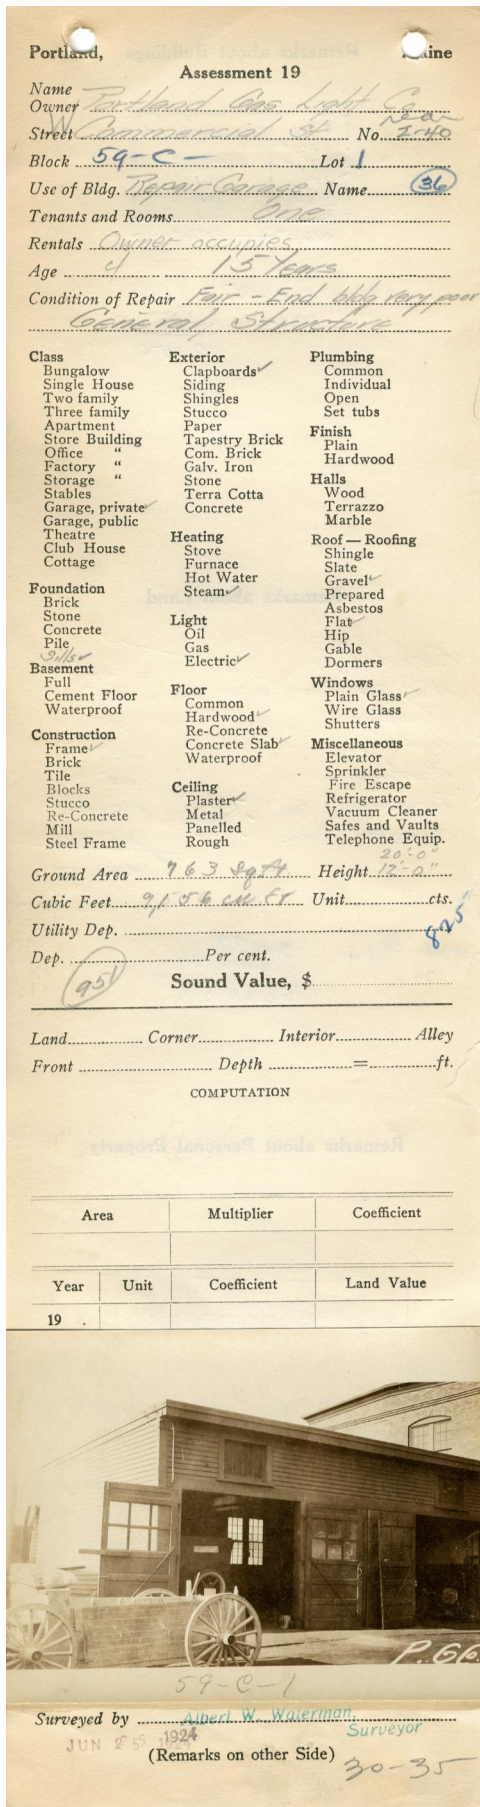 Portland, Maine
Assessment 19
Name
Owner Portland Gas Light Co
Rear
Street W Commercial St No. 2-40
Block 59-C- Lot 1
Use of Bldg. Repair Garage Name 36
Tenants and Rooms One
Rentals Owner occupies
Age 4 15 Years
Condition of Repair Fair - End bldg very poor
General, Structure
Class
Bungalow
Single House
Two family
Three family
Apartment
Store Building
Office "
Factory "
Storage "
Stables
Garage, private ✓
Garage, public
Theatre
Club House
Cottage
Foundation
Brick
Stone
Concrete
Pile
Sills ✓
Basement
Full
Cement Floor
Waterproof
Construction
Frame ✓
Brick
Tile
Blocks
Stucco
Re-Concrete
Mill
Steel Frame
Exterior
Clapboards ✓
Siding
Shingles
Stucco
Paper
Tapestry Brick
Com. Brick
Galv. Iron
Stone
Terra Cotta
Concrete
Heating
Stove
Furnace
Hot Water
Steam ✓
Light
Oil
Gas
Electric ✓
Floor
Common
Hardwood ✓
Re-Concrete
Concrete Slab ✓
Waterproof
Ceiling
Plaster ✓
Metal
Panelled
Rough
Plumbing
Common
Individual
Open
Set tubs
Finish
Plain
Hardwood
Halls
Wood
Terrazzo
Marble
Roof — Roofing
Shingle
Slate
Gravel ✓
Prepared
Asbestos
Flat ✓
Hip
Gable
Dormers
Windows
Plain Glass ✓
Wire Glass
Shutters
Miscellaneous
Elevator
Sprinkler
Fire Escape
Refrigerator
Vacuum Cleaner
Safes and Vaults
Telephone Equip.
20'-0"
Ground Area 763 Sq Ft Height 12'-0"
Cubic Feet 9,156 cu Ft Unit cts.
Utility Dep. 825
Dep. Per cent.
951
Sound Value, $
Land Corner Interior Alley
Front Depth = ft.
COMPUTATION
Area Multiplier Coefficient
Year Unit Coefficient Land Value
19 .
P.66
59-C-1
Surveyed by Albert W. Waterman,
Surveyor
JUN 25 1924
(Remarks on other Side)
30-35